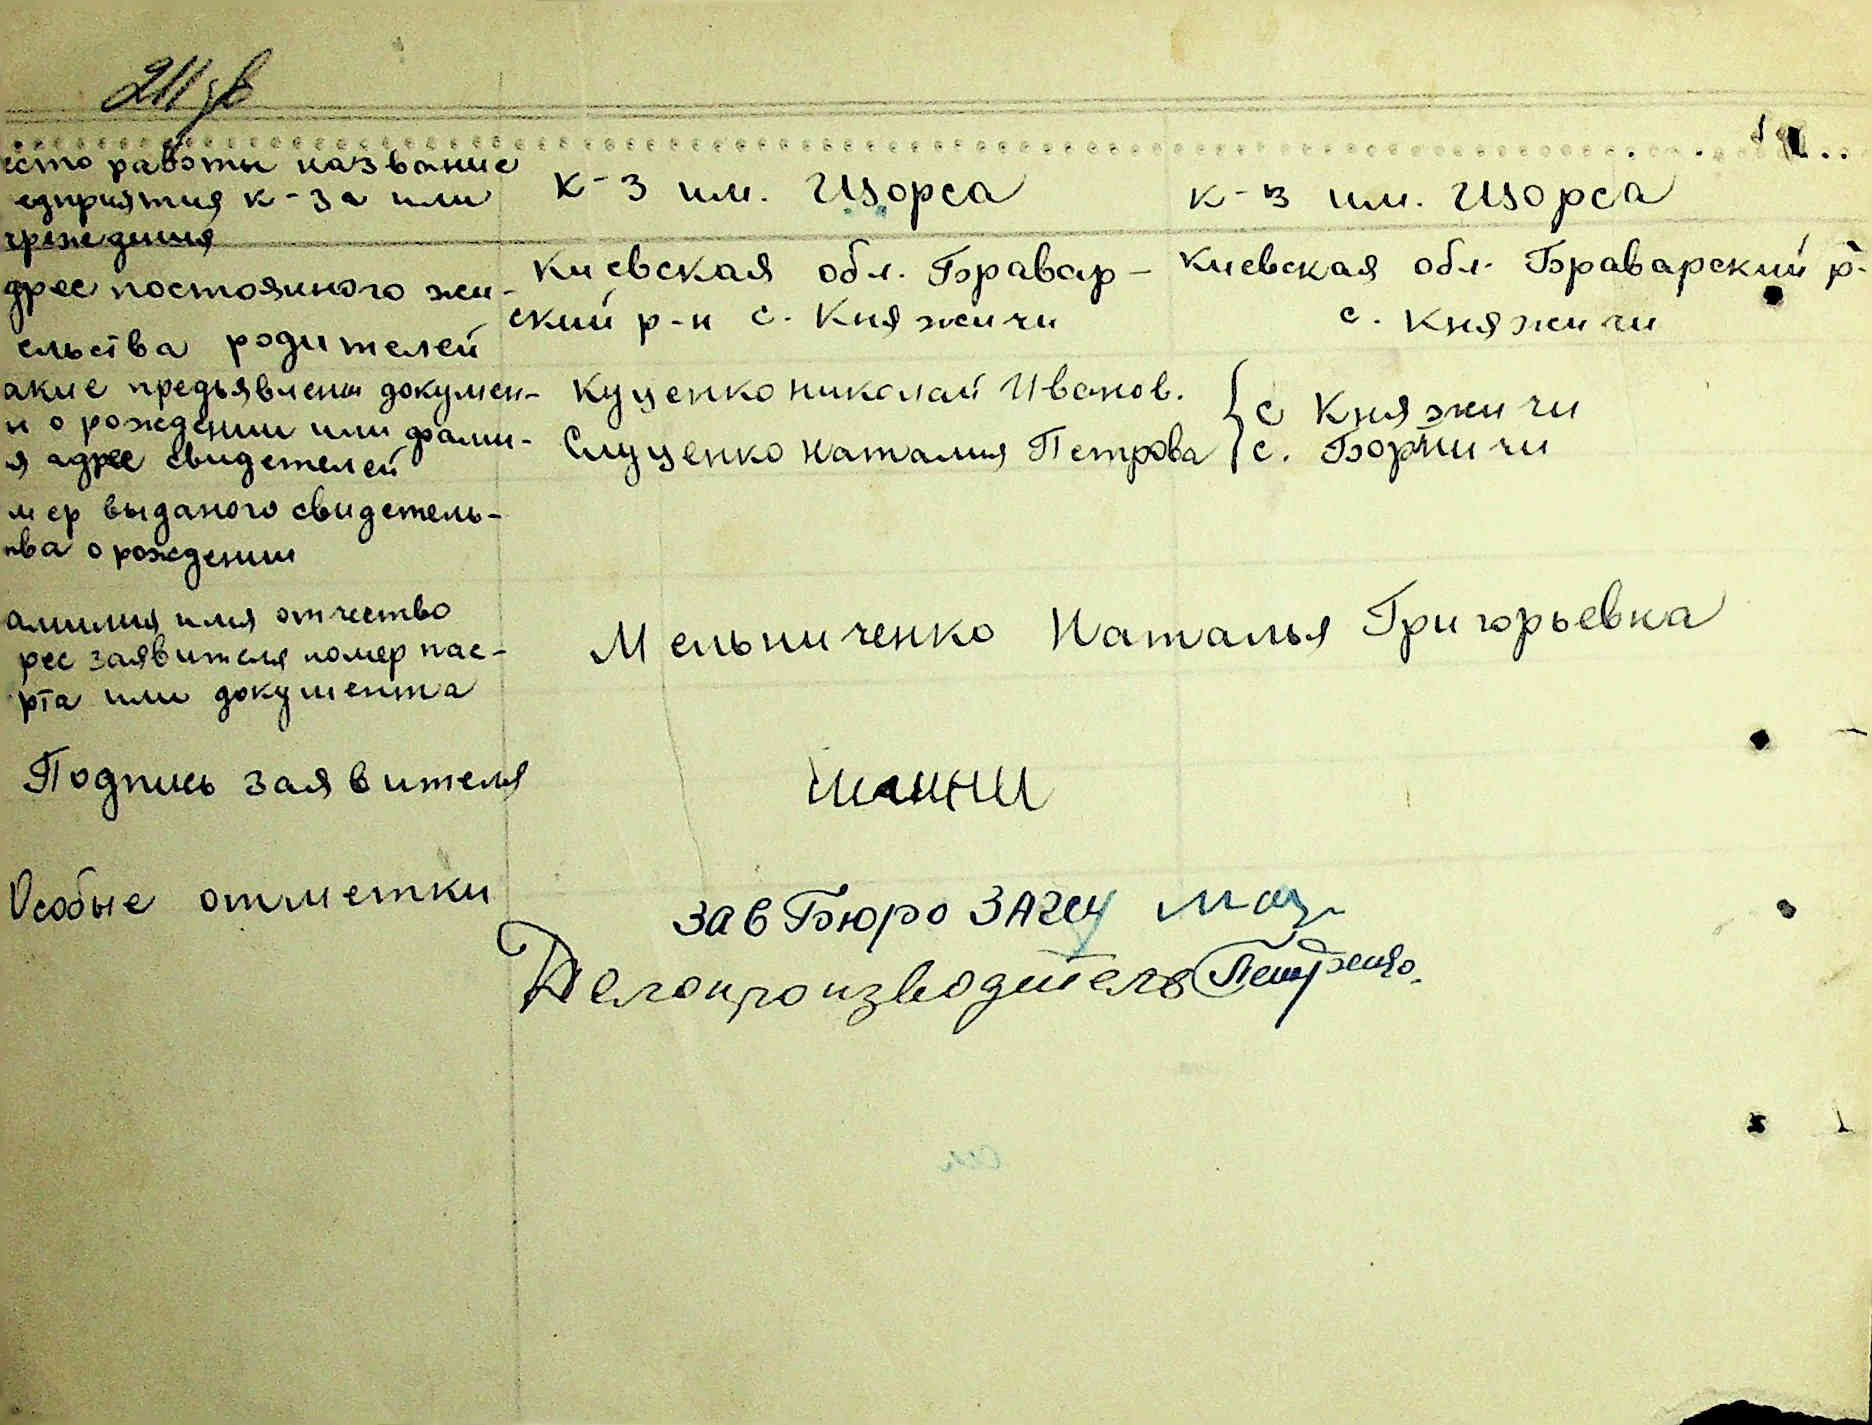 211 зв
есто работы название
едприятия к-за или
чреждения
к-з им. Щорса
к-з им. Щорса
дрес постоянного жи-
ельства родителей
Киевская обл. Бравар-
ский р-н с. Княжичи
Киевская обл. Браварский р-
с. Княжичи
акие предьявлены докумен-
и о рождении или фами-
я адрес свидетелей
Куценко Николай Иванов.
Слуценко Наталия Петрова
с Княжичи
с. Борничи
мер выданого свидетель-
тва о рождении
амилия имя отчество
рес заявителя номер пас-
рта или документа
Мельниченко Наталья Григорьевна
Подпись заявителя
Особые отметки
зав Бюро ЗАГСУ
Делопроизводитель